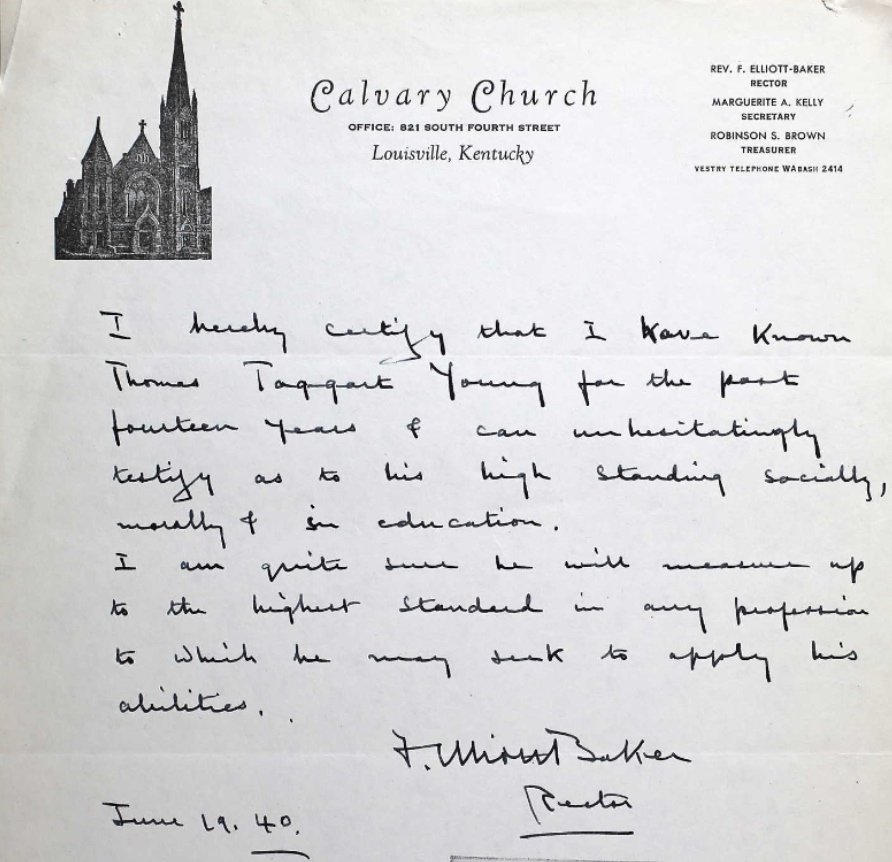 Calvary Church
OFFICE: 821 SOUTH FOURTH STREET
Louisville, Kentucky
REV. F. ELLIOTT-BAKER
RECTOR
MARGUERITE A. KELLY
SECRETARY
ROBINSON S. BROWN
TREASURER
VESTRY TELEPHONE WABASH 2414
I hereby certify that I have known
Thomas Taggart Young for the past
fourteen years & can unhesitatingly
testify as to his high standing socially,
morally & in education.
I am quite sure he will measure up
to the highest standard in any profession
to which he may seek to apply his
abilities.
F. Elliott Baker
Rector
June 19. 40.